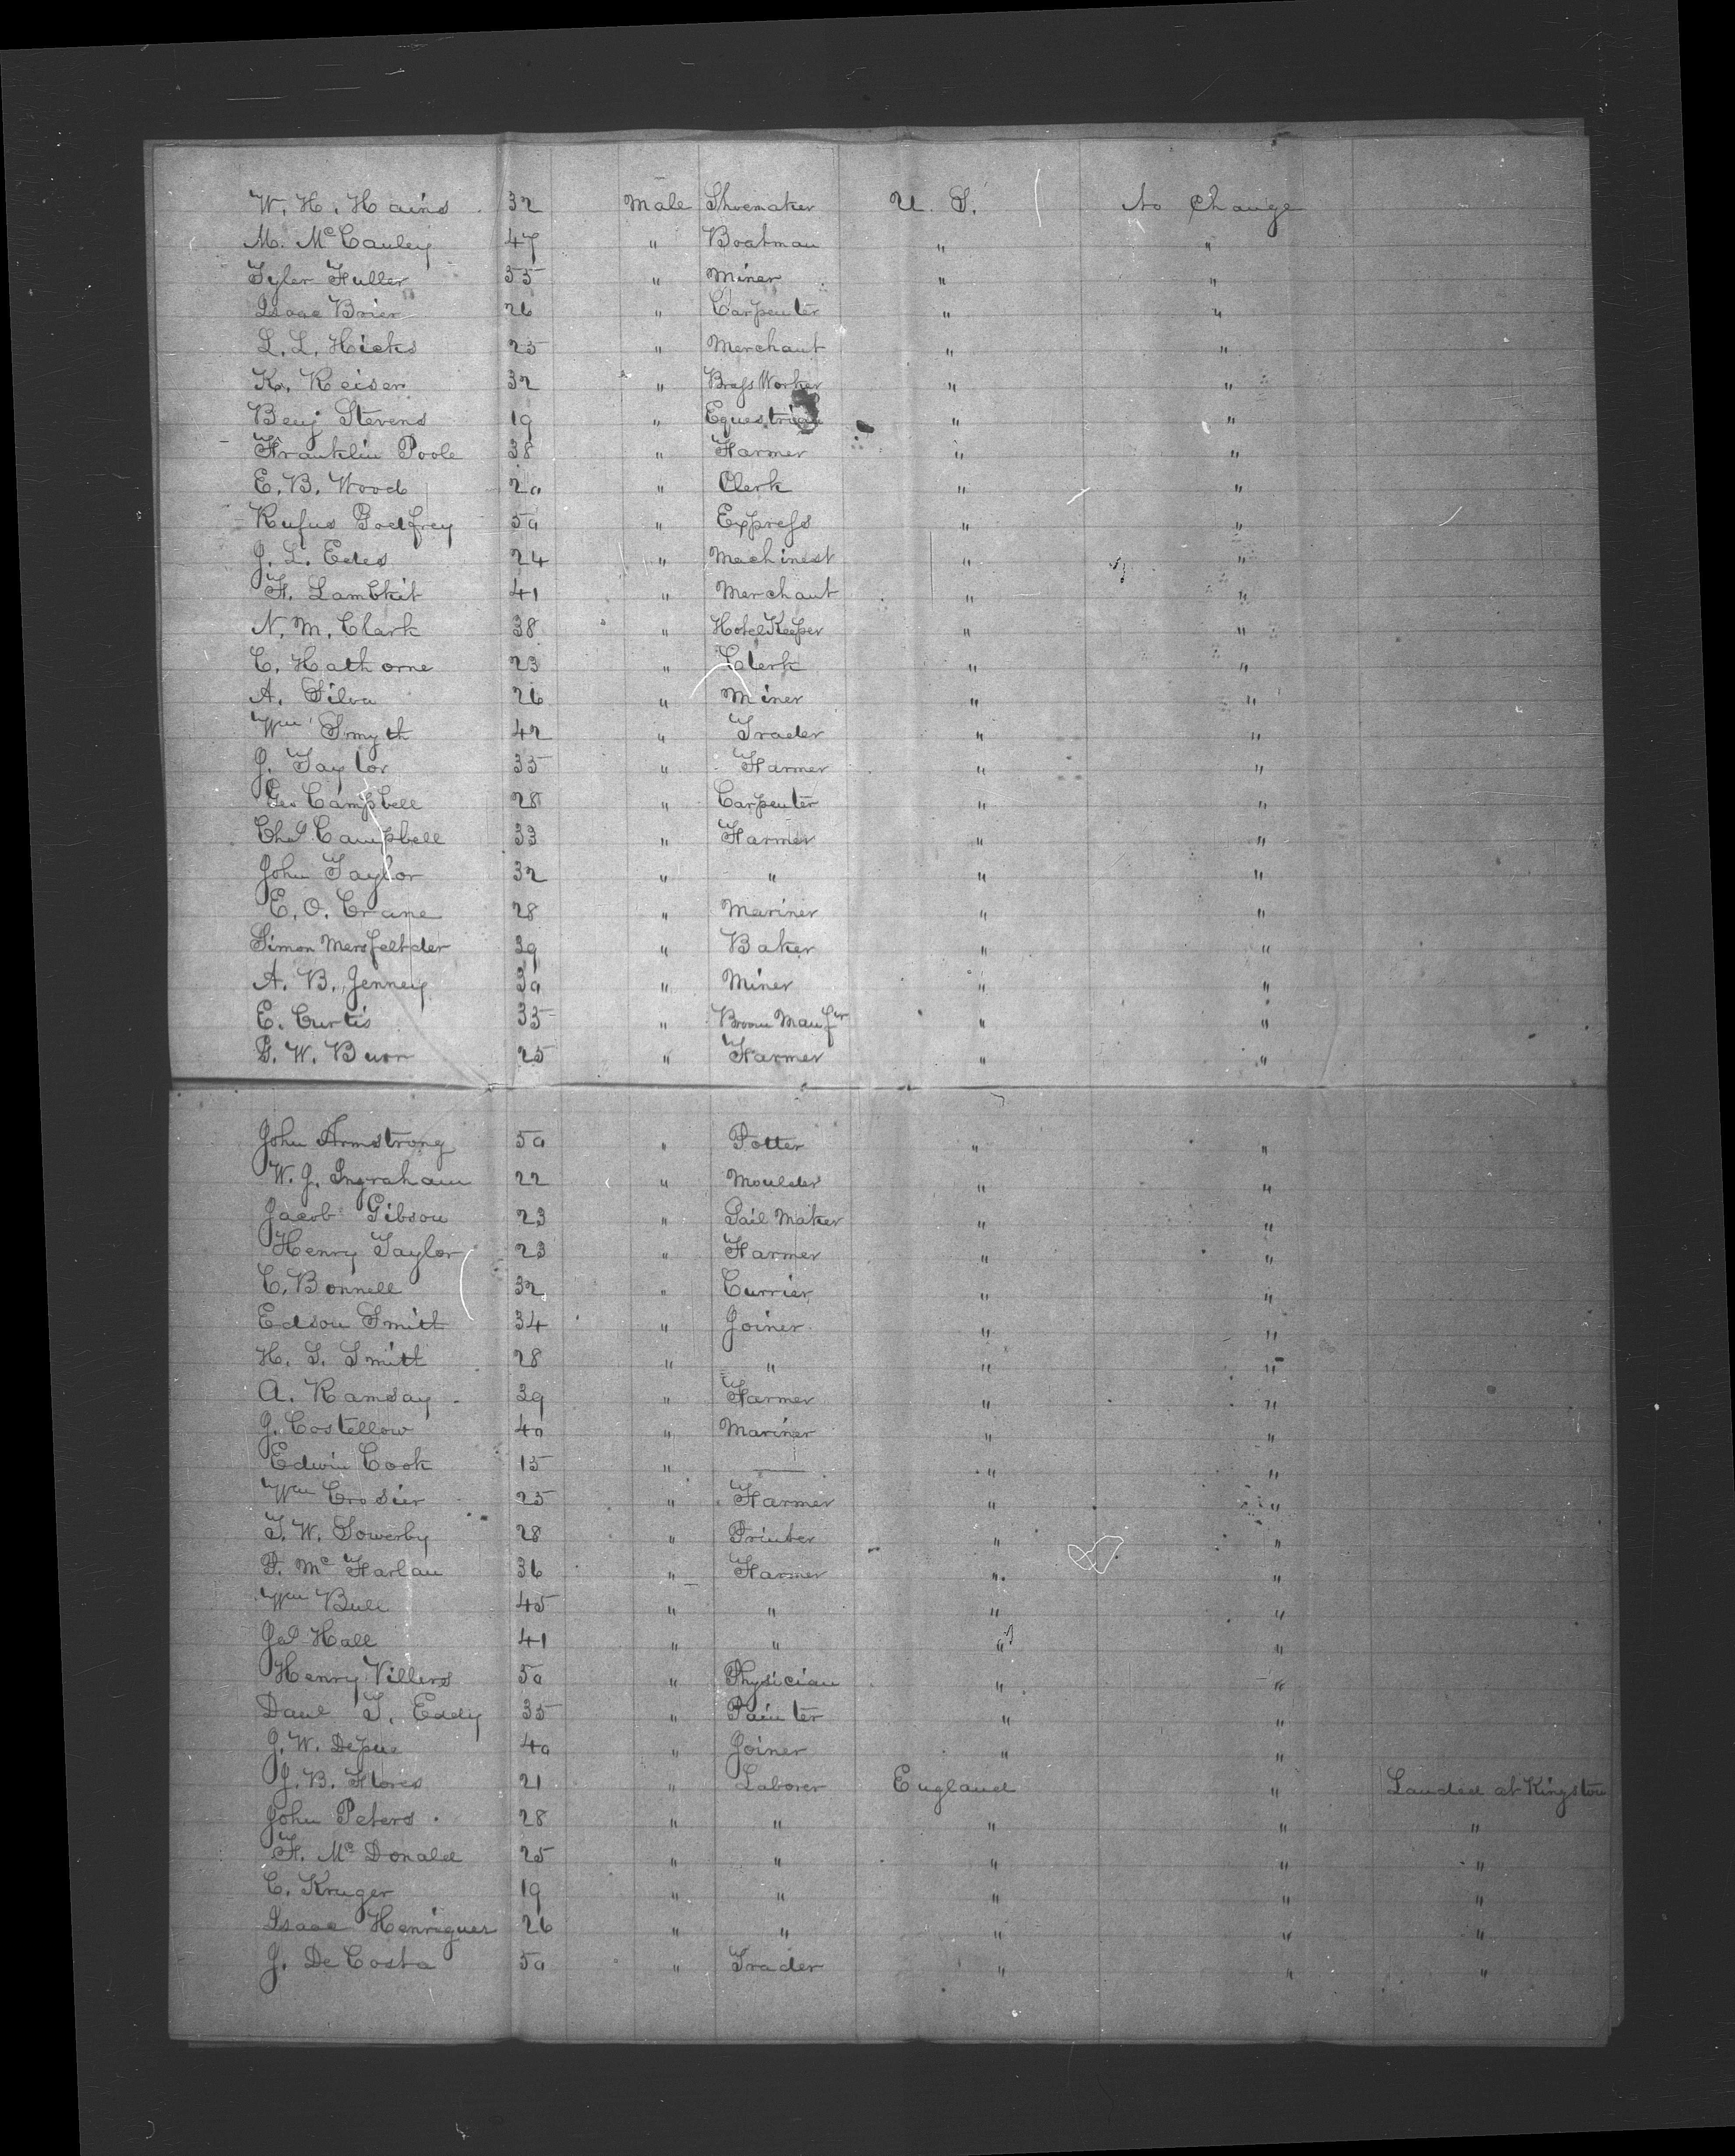 W. H. Hains 32 Male Shoemaker U. S. No Change
M. McCauley 47 " Boatman " "
Tyler Fuller 55 " Miner " "
Isaac Brier 26 " Carpenter " "
L. L. Hicks 25 " Merchant " "
K. Keiser 32 " Brass Worker " "
Benj Stevens 19 " Equestrian " "
Franklin Poole 38 " Farmer " "
E. B. Wood 20 " Clerk " "
Rufus Godfrey 50 " Express " "
J. L. Edes 24 " Machinest " "
F. Lambkit 41 " Merchant " "
N. M. Clark 38 " Hotel Keeper " "
C. Hathorne 23 " Clerk " "
A. Silva 26 " Miner " "
Wm Smyth 42 " Trader " "
J. Taylor 35 " Farmer " "
Geo Campbell 28 " Carpenter " "
Chas Campbell 33 " Farmer " "
John Taylor 32 " " " "
E. O. Crane 28 " Mariner " "
Simon Mersfeltder 39 " Baker " "
A. B. Jenney 30 " Miner " "
E. Curtis 35 " Broom Manfr " "
G. W. Burr 25 " Farmer " "
John Armstrong 50 " Potter " "
W. J. Ingraham 22 " Moulder " "
Jacob Gibson 23 " Sail Maker " "
Henry Taylor 23 " Farmer " "
C. Bonnell 32 " Currier " "
Edson Smith 34 " Joiner " "
H. S. Smith 28 " " " "
A. Ramsay 39 " Farmer " "
J. Costellow 40 " Mariner " "
Edwin Cook 15 " — " "
Wm Crosier 25 " Farmer " "
T. W. Sowerby 28 " Printer " "
P. McFarlan 36 " Farmer " "
Wm Bull 45 " " " "
Jas Hall 41 " " " "
Henry Villers 50 " Physician " "
Danl T. Eddy 35 " Painter " "
J. W. Depue 40 " Joiner " "
J. B. Flores 21 " Laborer England " Landed at Kingston
John Peters 28 " " " " "
F. McDonald 25 " " " " "
C. Kruger 19 " " " " "
Isaac Henriques 26 " " " " "
J. DeCosta 50 " Trader " " "